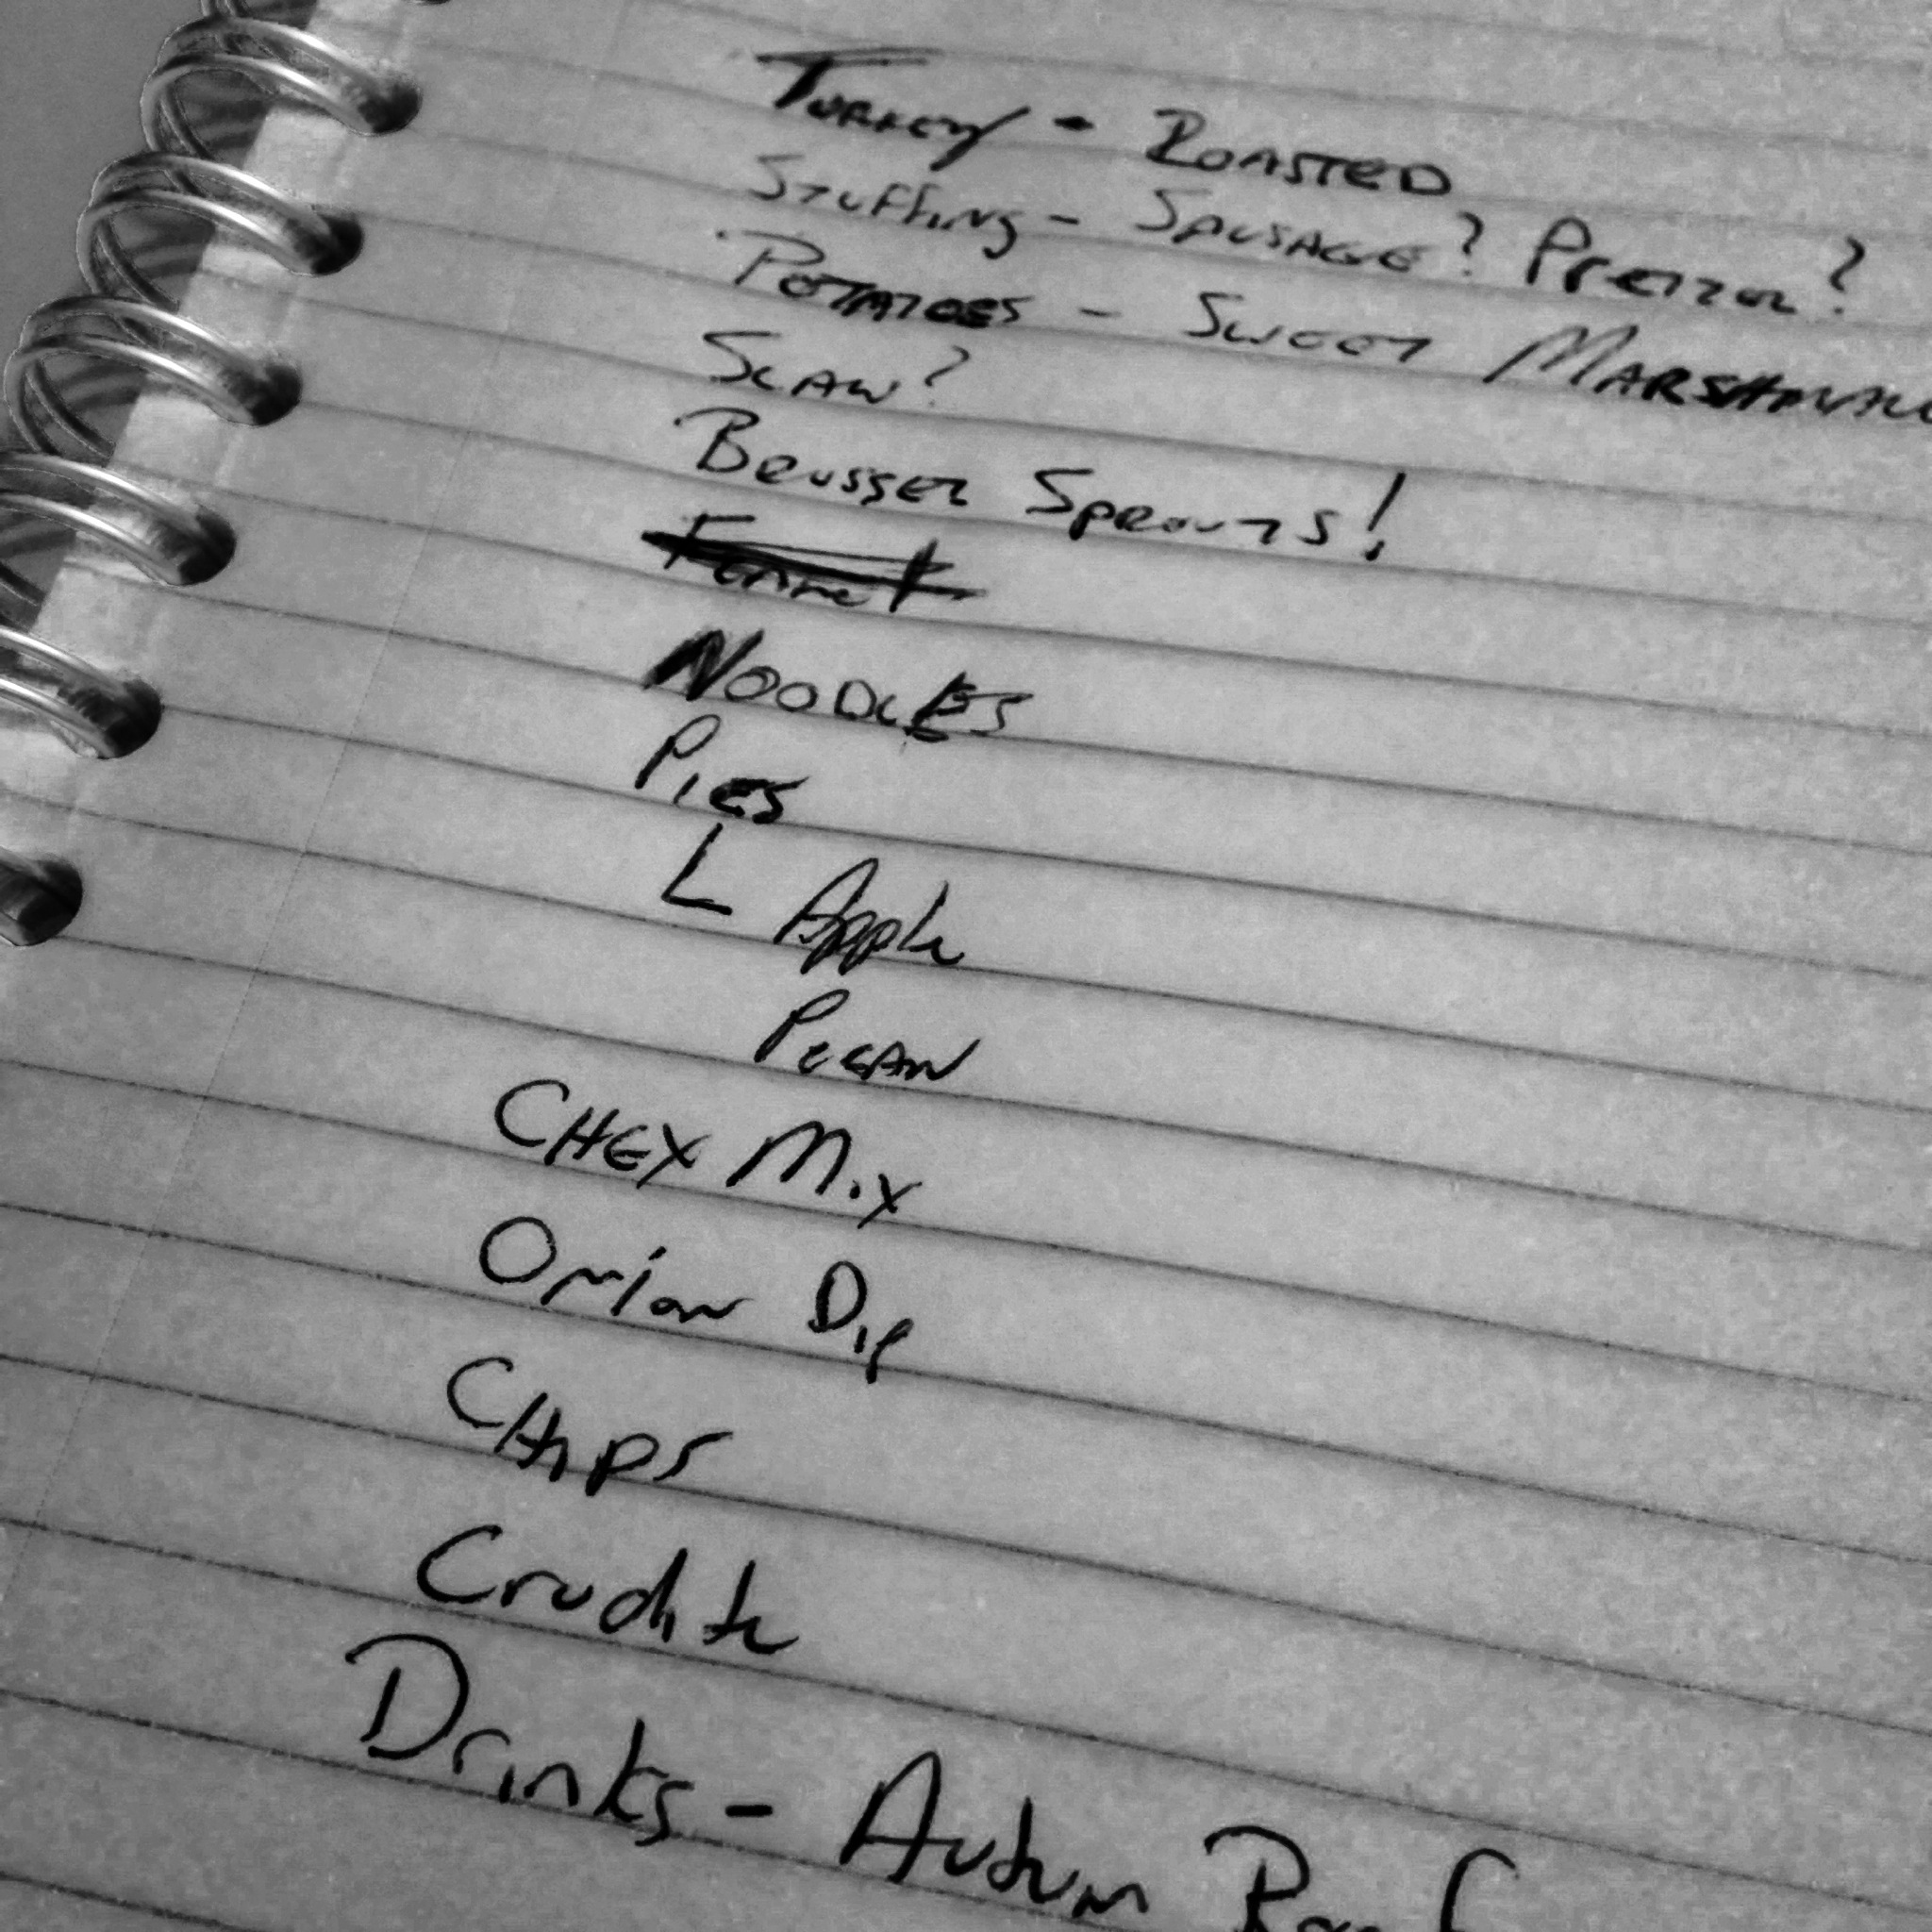 Turkey - Roasted
Stuffing - Sausage? Pretzel?
Potatoes - Sweet
Slaw?
Brussel Sprouts!
Noodles
Pies
L Apple
Pecan
Chex Mix
Onion Dip
Chips
Crudite
Drinks - Autum